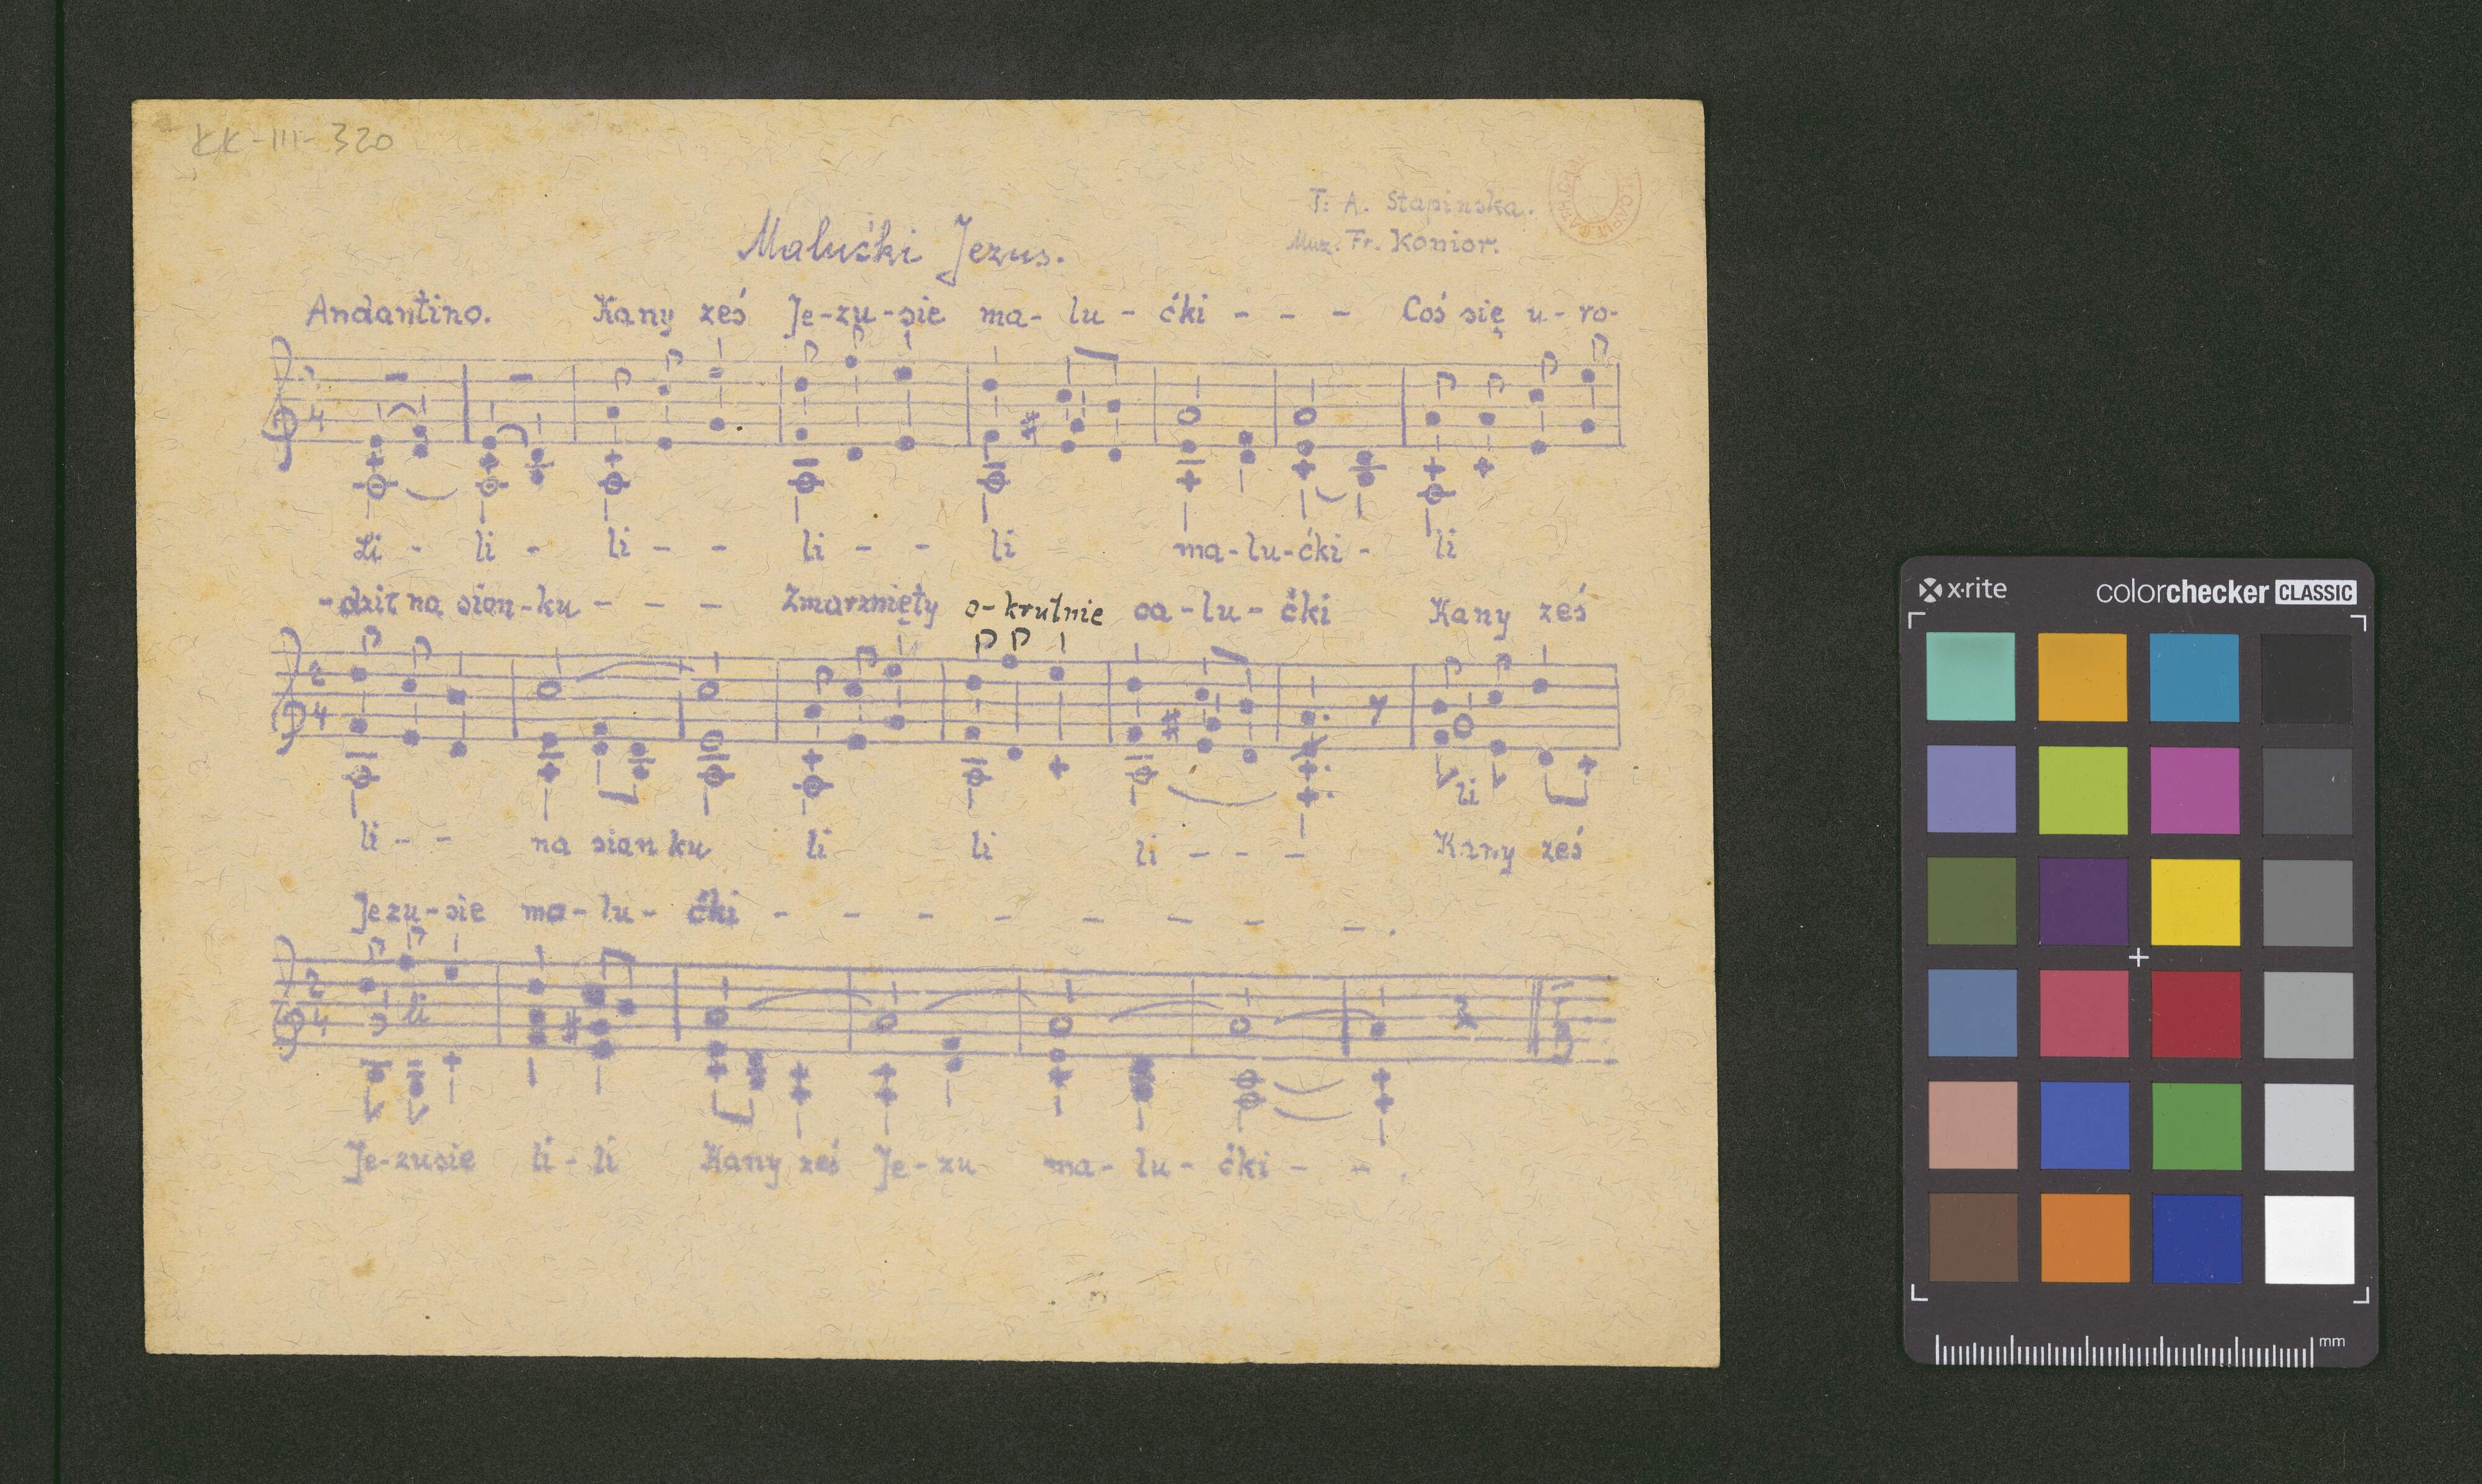 KK-III-320
T: A. Stapinska.
Muz. Fr. Konior.
Malućki Jezus.
Andantino. Kany ześ Je-zu-sie ma-lu-ćki - - - Coś się u-ro-
2 4
Li - li - li - - li - - li ma-lu-ćki - li
-dził na sian-ku - - - Zmarznięty o-krutnie ca-lu-ćki Kany ześ
2 4
li
li - - na sian ku li li li - - - Kany ześ
Jezu-sie ma-lu-ćki - - - - - - - - .
2 4
li
Je-zusie li-li Kany ześ Je-zu ma-lu-ćki - - .
x·rite colorchecker CLASSIC
mm